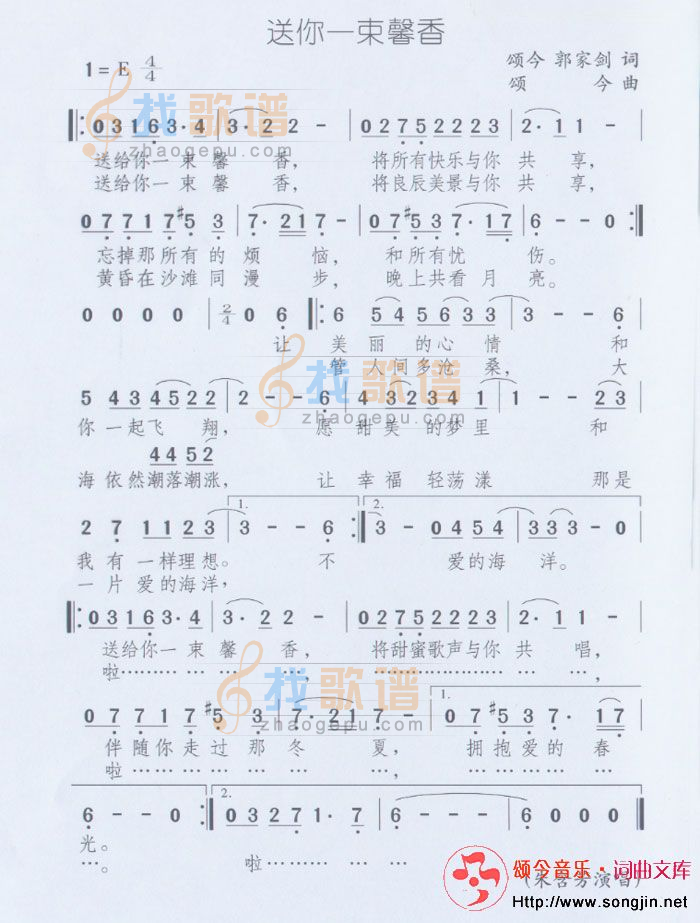 送你一束馨香
1 = E 4/4
颂今 郭家剑 词
颂 今 曲
找歌谱
zhaogepu.com
0 3 1 6 3· 4 | 3· 2 2 - | 0 2 7 5 2 2 2 3 | 2· 1 1 - |
送给你一束馨香，将所有快乐与你共享，
送给你一束馨香，将良辰美景与你共享，
0 7 7 1 7 #5 3 | 7· 2 1 7 - | 0 7 #5 3 7· 1 7 | 6 - - 0 :||
忘掉那所有的烦恼，和所有忧伤。
黄昏在沙滩同漫步，晚上共看月亮。
0 0 0 0 | 2/4 0 6 ||: 6 5 4 5 6 3 3 | 3 - - 6 |
让美丽的心情和
管人间多沧桑，大
找歌谱
zhaogepu.com
5 4 3 4 5 2 2 | 2 - - 6 | 4 3 2 3 4 1 | 1 - - 2 3 |
你一起飞翔，愿甜美的梦里和
4 4 5 2
海依然潮落潮涨，让幸福轻荡漾那是
2 7 1 1 2 3 | 1. 3 - - 6 :|| 2. 3 - 0 4 5 4 | 3 3 3 - 0 |
我有一样理想。不爱的海洋。
一片爱的海洋，
||: 0 3 1 6 3· 4 | 3· 2 2 - | 0 2 7 5 2 2 2 3 | 2· 1 1 - |
送给你一束馨香，将甜蜜歌声与你共唱，
啦………………，………………………，
找歌谱
zhaogepu.com
0 7 7 1 7 #5 3 | 7· 2 1 7 - | 1. 0 7 #5 3 7· 1 7 |
伴随你走过那冬夏，拥抱爱的春
啦………………，………………
6 - - 0 :|| 2. 0 3 2 7 1· 7 | 6 - - - | 6 0 0 0 ||
光。
…。啦………………
颂今音乐·词曲文库
演唱)
Http://www.songjin.net